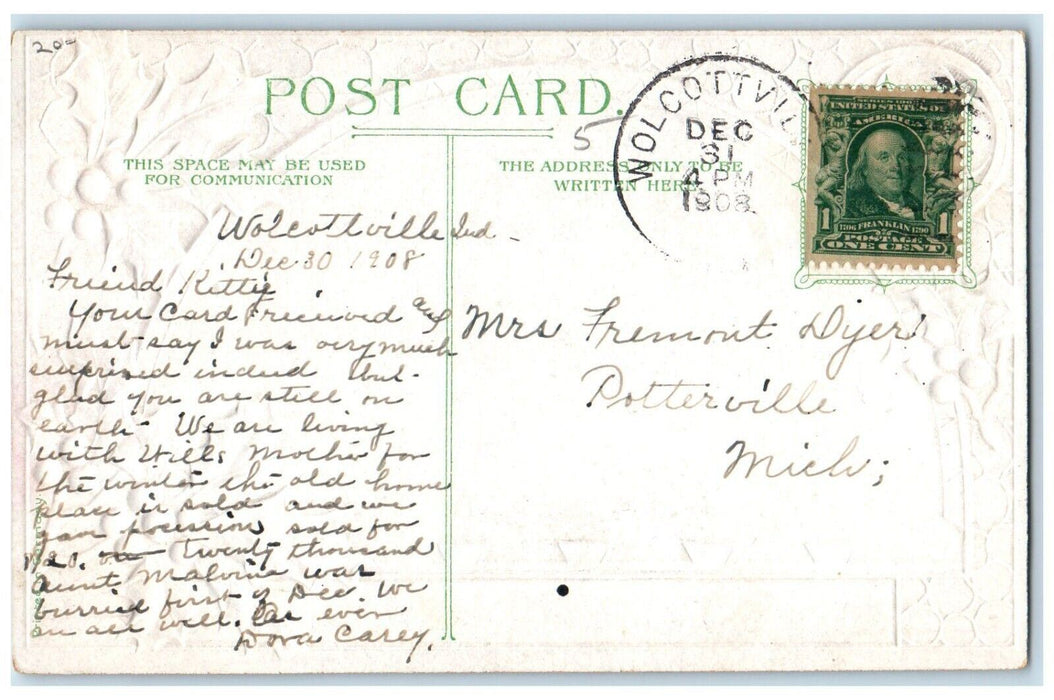 20-
POST CARD.
5
THIS SPACE MAY BE USED
FOR COMMUNICATION
THE ADDRESS ONLY TO BE
WRITTEN HERE
WOLCOTTVIL
DEC
31
4 PM
1908
UNITED STATES OF
AMERICA
1 1
1706 FRANKLIN 1790
POSTAGE
ONE CENT
Wolcottville Ind -
Dec 30 1908
Friend Kittie
Your Card reicived and
must say I was very much
surprised indeed but
glad you are still on
earth - We are living
with Wills Mother for
the winter the old home
place is sold and we
gave posession sold for
twenty thousand
aunt Malvina was
burried first of Dec. We
are all well. as ever
Dora Carey.
Mrs Fremont Dyer
Potterville
Mich;